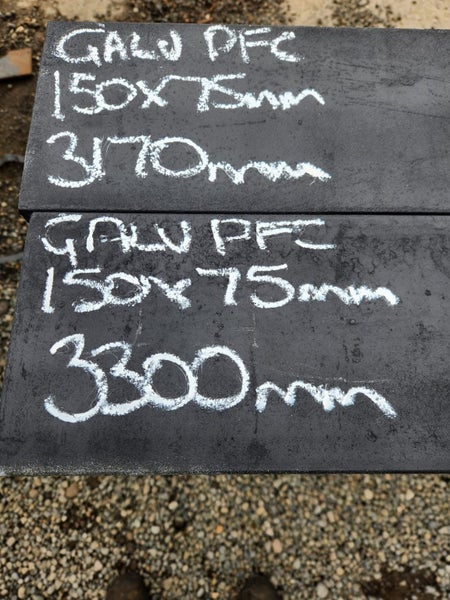 GALV PFC
150x75mm
3170mm
GALV PFC
150x75mm
3300mm